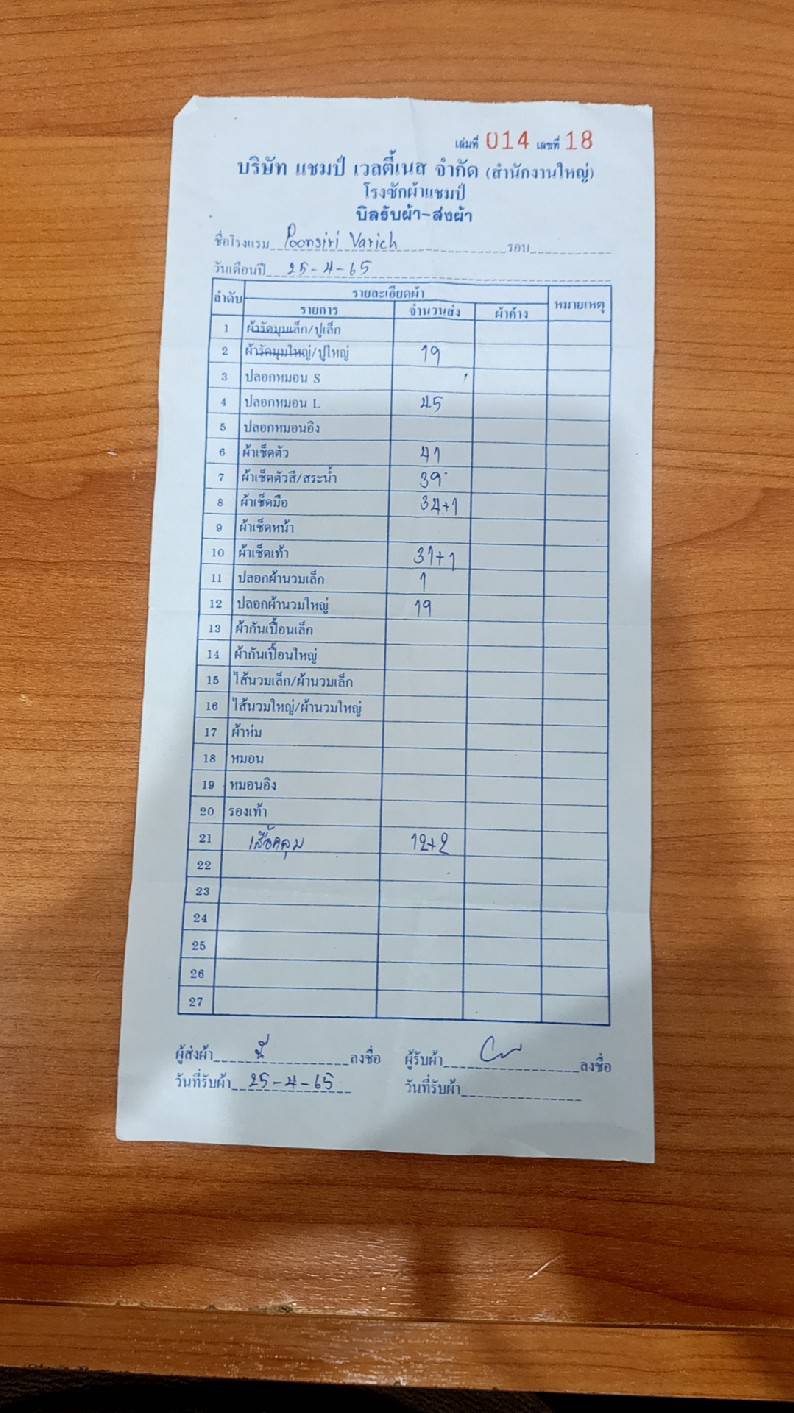 เล่มที่ 014 เลขที่ 18
บริษัท แชมป์ เวลตี้เนส จำกัด (สำนักงานใหญ่)
โรงซักผ้าแชมป์
บิลรับผ้า-ส่งผ้า
ชื่อโรงแรม Poonsiri Varich รอบ
วันเดือนปี 25-4-65
ลำดับ รายละเอียดผ้า หมายเหตุ
รายการ จำนวนส่ง ผ้าค้าง
1 ผ้ารัดมุมเล็ก/ปูเล็ก
2 ผ้ารัดมุมใหญ่/ปูใหญ่ 19
3 ปลอกหมอน S
4 ปลอกหมอน L 45
5 ปลอกหมอนอิง
6 ผ้าเช็ดตัว 41
7 ผ้าเช็ดตัวสี/สระน้ำ 39
8 ผ้าเช็ดมือ 34+1
9 ผ้าเช็ดหน้า
10 ผ้าเช็ดเท้า 31+1
11 ปลอกผ้านวมเล็ก 1
12 ปลอกผ้านวมใหญ่ 19
13 ผ้ากันเปื้อนเล็ก
14 ผ้ากันเปื้อนใหญ่
15 ไส้นวมเล็ก/ผ้านวมเล็ก
16 ไส้นวมใหญ่/ผ้านวมใหญ่
17 ผ้าห่ม
18 หมอน
19 หมอนอิง
20 รองเท้า
21 เสื้อคลุม 12+2
22
23
24
25
26
27
ผู้ส่งผ้า ลงชื่อ ผู้รับผ้า ลงชื่อ
วันที่รับผ้า 25-4-65 วันที่รับผ้า